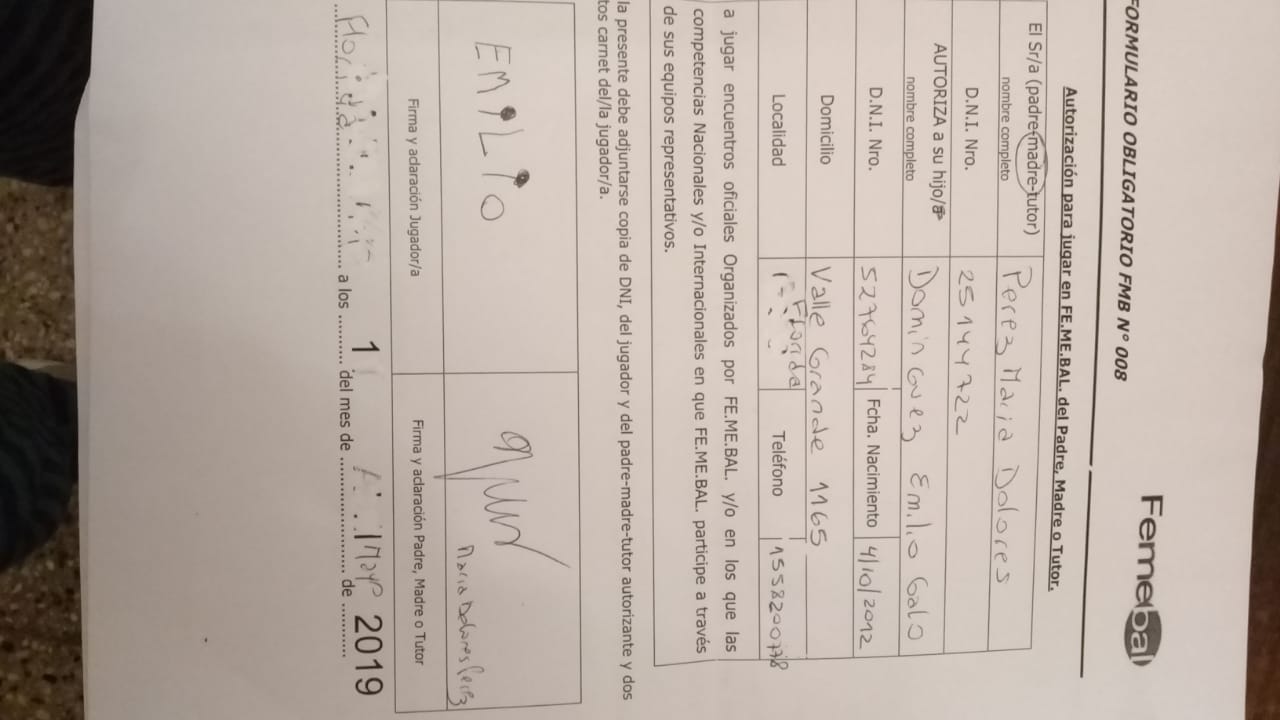 FORMULARIO OBLIGATORIO FMB N° 008
Femebal
Autorización para jugar en FE.ME.BAL. del Padre, Madre o Tutor.
El Sr/a (padre-madre-tutor) nombre completo Perez Maria Dolores
D.N.I. Nro. 25144722
AUTORIZA a su hijo/a nombre completo Dominguez Emilio Galo
D.N.I. Nro. 52764284 Fcha. Nacimiento 4/10/2012
Domicilio Valle Grande 1165
Localidad Florida Teléfono 1558200778
a jugar encuentros oficiales Organizados por FE.ME.BAL. y/o en los que las
competencias Nacionales y/o Internacionales en que FE.ME.BAL. participe a través
de sus equipos representativos.
la presente debe adjuntarse copia de DNI, del jugador y del padre-madre-tutor autorizante y dos
tos carnet del/la jugador/a.
EMILIO
Maria Dolores Perez
Firma y aclaración Jugador/a Firma y aclaración Padre, Madre o Tutor
Florida a los 1 del mes de Mayo de 2019